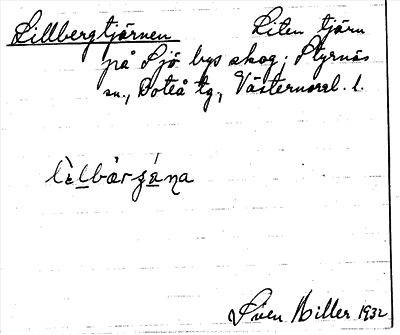 Lillbergtjärnen Liten tjärn
på Sjö bys skog; Styrnäs
sn., Boteå tg, Västernorrl. l.
Sven Hiller 1932